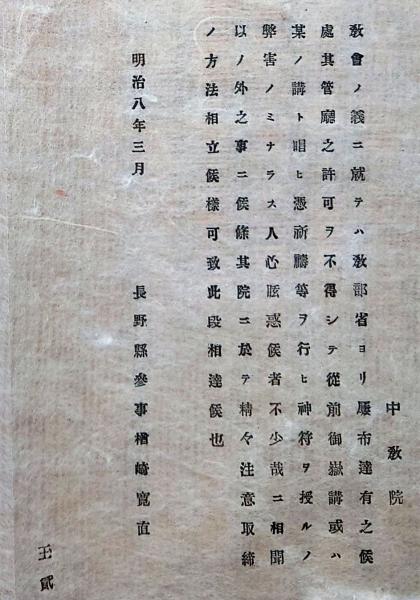 中教院
教會ノ義ニ就テハ教部省ヨリ屢布達有之候
處其管廳之許可ヲ不得シテ從前御嶽講或ハ
某ノ講ト唱ヒ憑祈禱等ヲ行ヒ神符ヲ授ルノ
弊害ノミナラス人心眩惑候者不少哉ニ相聞
以ノ外之事ニ候條其院ニ於テ精々注意取締
ノ方法相立候樣可致此段相達候也
明治八年三月
長野縣參事楢崎寬直
王貳